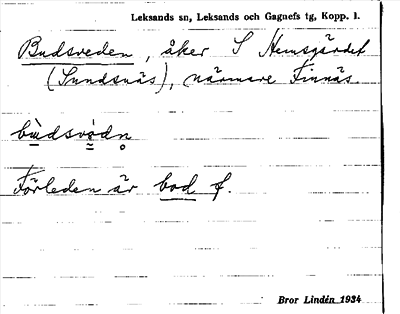 Leksands sn, Leksands och Gagnefs tg, Kopp. l.
Budsveden, åker S Hemsgårdet
(Sundsnäs), närmare Finnäs.
bùdsvo̤dn̥
Förleden är bod f.
Bror Lindén 1934